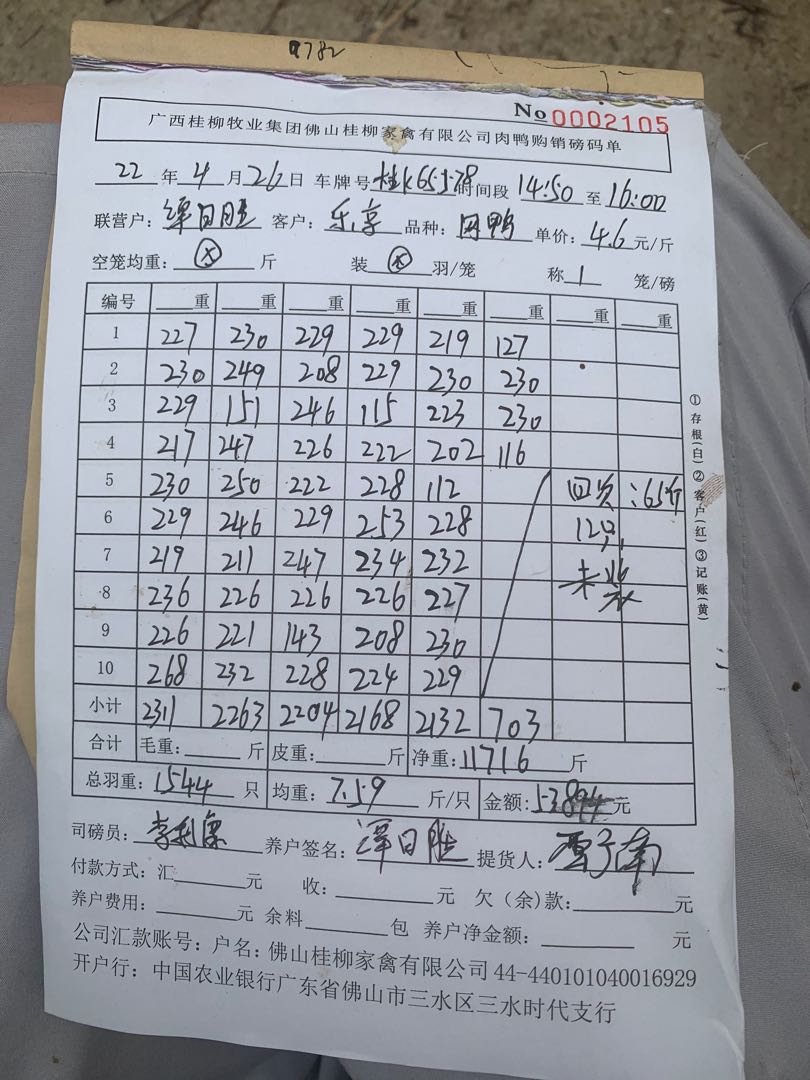 9782
No 0002105
广西桂柳牧业集团佛山桂柳家禽有限公司肉鸭购销磅码单
22 年 4 月 26 日 车牌号 桂K65578 时间段 14:50 至 16:00
联营户: 谭日胜 客户: 乐享 品种: 网鸭 单价: 4.6 元/斤
空笼均重: ⊗ 斤 装 ⊗ 羽/笼 称 1 笼/磅
编号 重 重 重 重 重 重 重 重
1 227 230 229 229 219 127
2 230 249 208 229 230 230
3 229 151 246 115 223 230
4 217 247 226 222 202 116
5 230 250 222 228 112 :65斤
6 229 246 229 253 228 12只
7 219 211 247 234 232 未装
8 236 226 226 226 227
9 226 221 143 208 230
10 268 232 228 224 229
小计 2311 2263 2204 2168 2132 703
合计 毛重: 斤 皮重: 斤 净重: 11716 斤
总羽重: 1544 只 均重: 7.59 斤/只 金额: 53894 元
司磅员: 李利 养户签名: 谭日胜 提货人:
付款方式: 汇 元 收: 元 欠(余)款: 元
养户费用: 元 余料 包 养户净金额: 元
公司汇款账号: 户名: 佛山桂柳家禽有限公司 44-440101040016929
开户行: 中国农业银行广东省佛山市三水区三水时代支行
①存根(白)②客户(红)③记账(黄)